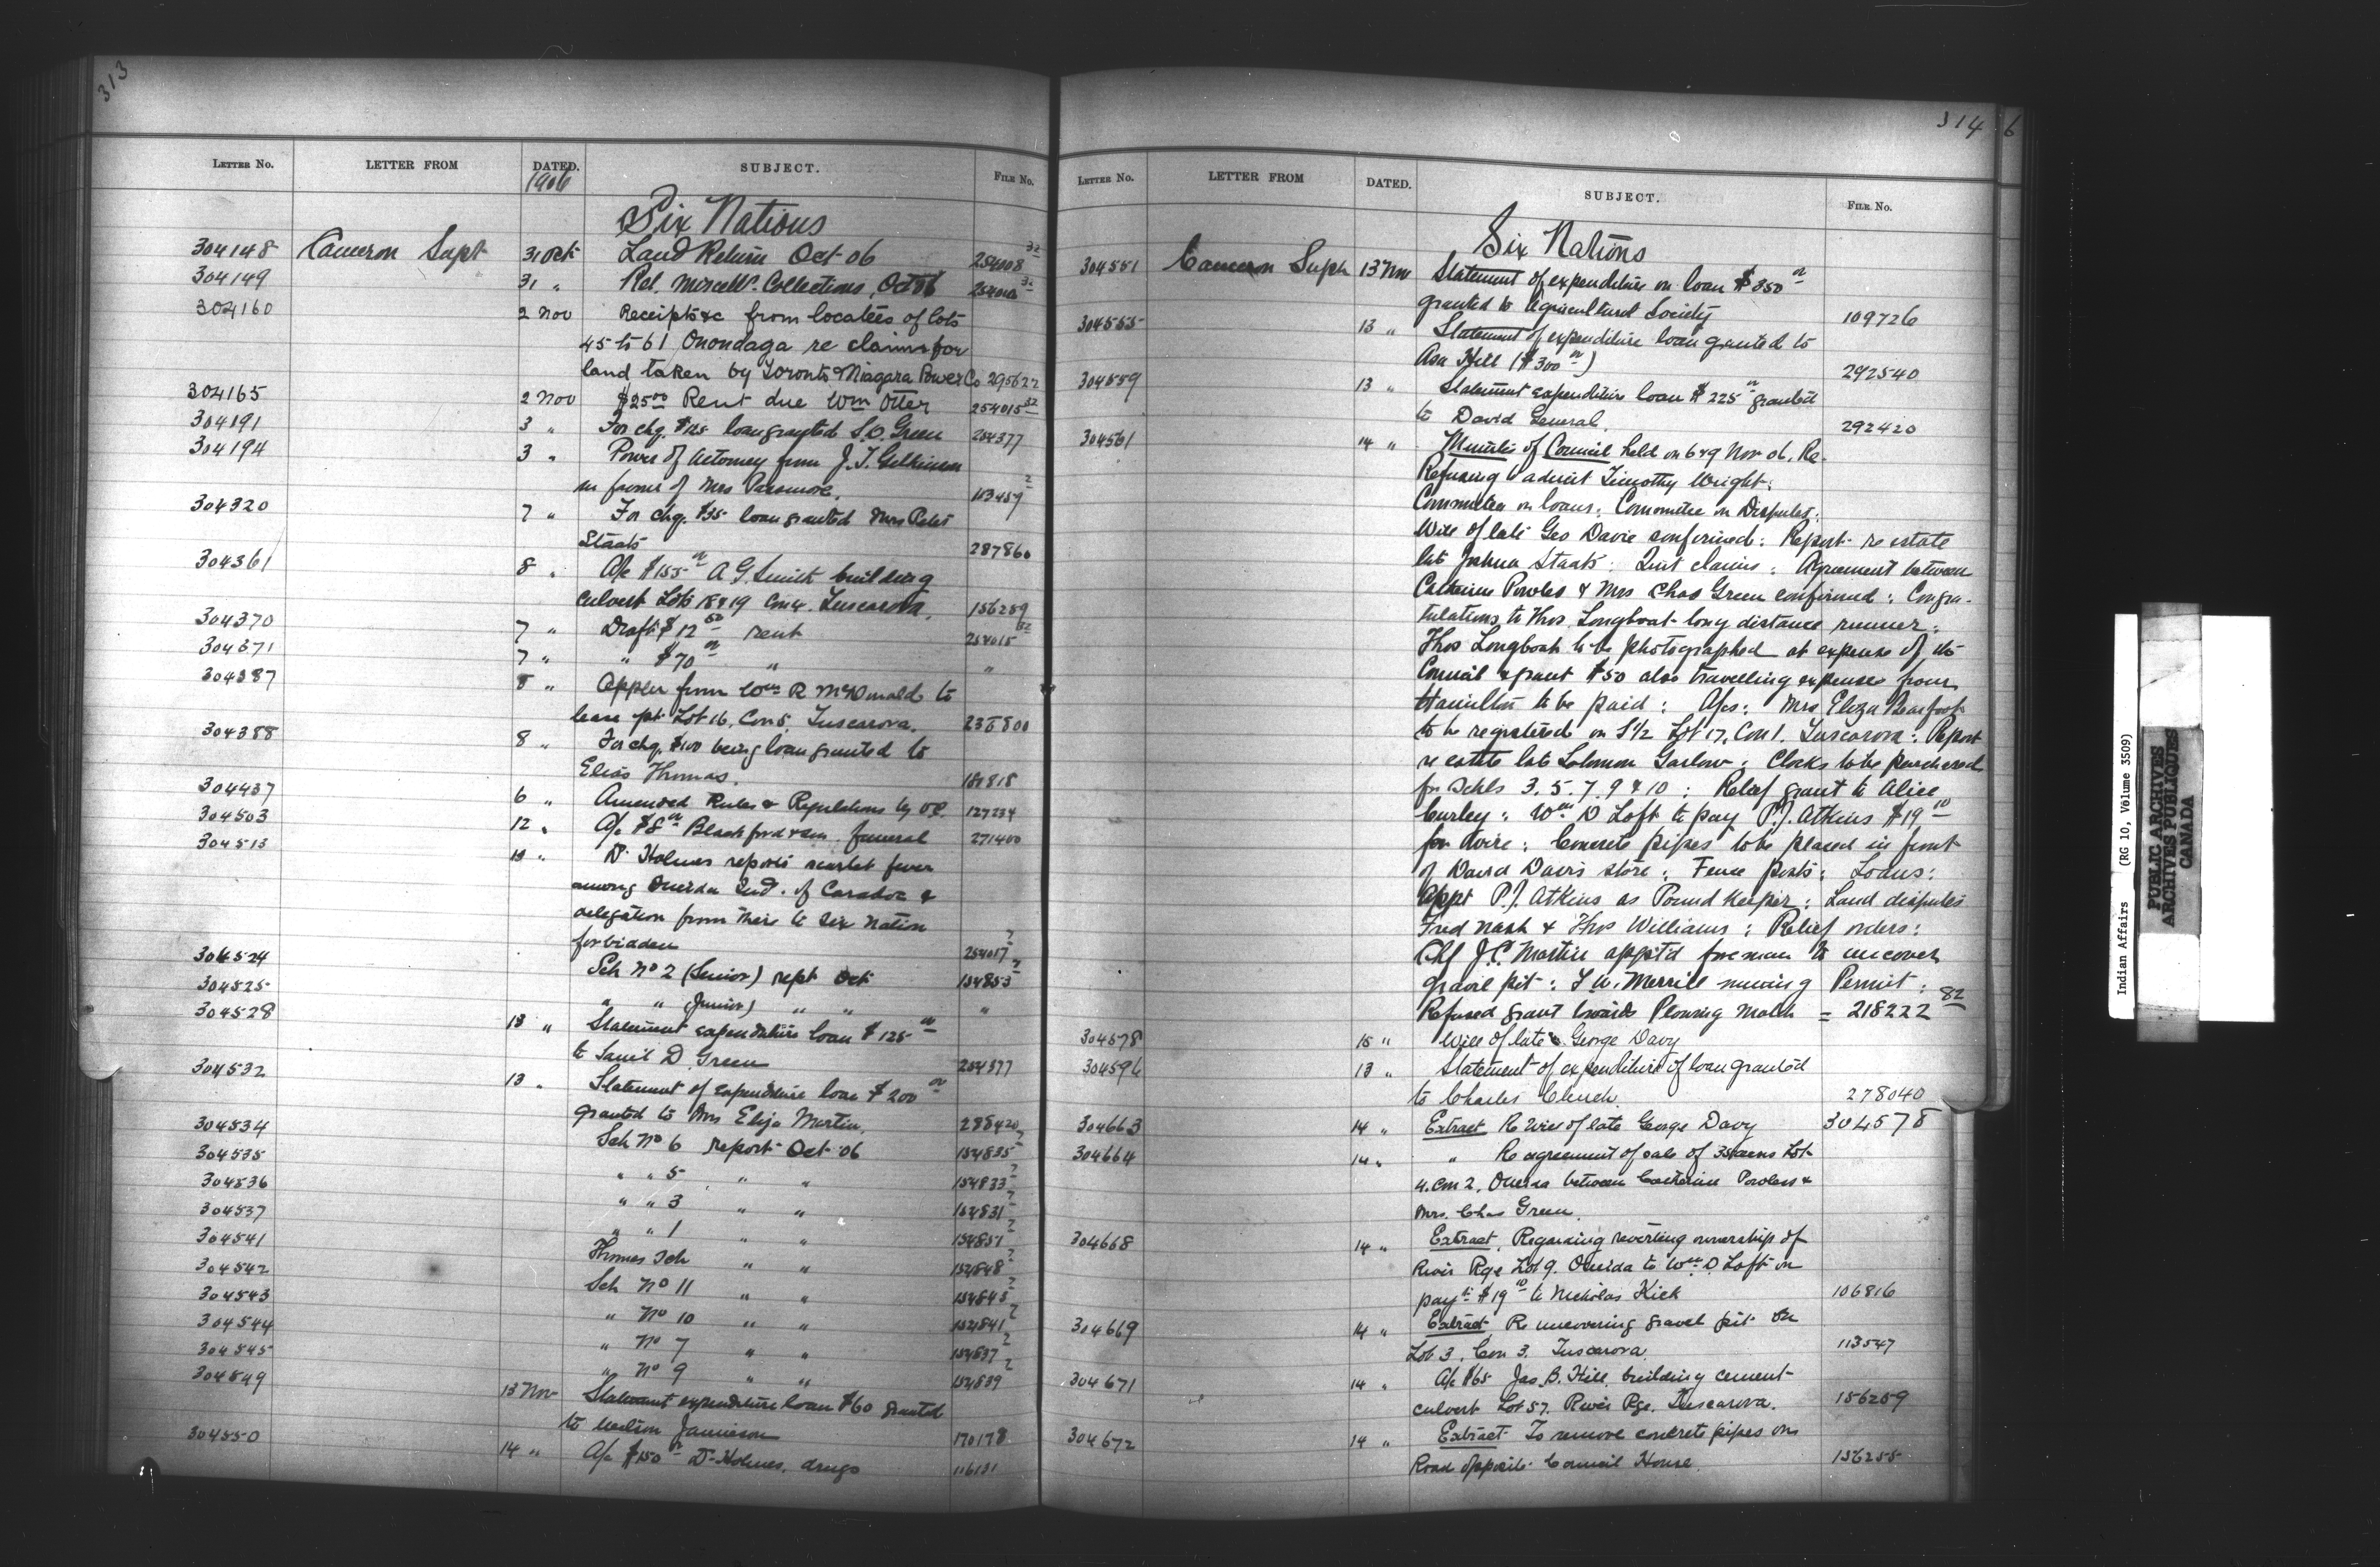 313
LETTER No. LETTER FROM DATED. SUBJECT. FILE No.
1906
Six Nations
304148 Cameron Supt 31 Oct Land Return Oct 06 254008 32
304149 31 " Ret. Miscells. Collections, Oct 06 32
304160 2 Nov Receipts &c from locatees of lots
45 to 61 Onondaga re claims for
land taken by Toronto & Niagara Power Co 295622
304165 2 Nov $25 00 Rent due Wm Otter 254015 32
304191 3 " For chq. $125 loan granted S.D. Green 254377
304194 3 " Power of Attorney from J.T. Gilkinson
in favour of Mrs Passmore. 2
304320 7 " For chq. $35 loan granted Mrs Peter
Staats 287860
304361 8 " A/c $155 00 A G Smith building
culvert Lots 18 & 19 Con 4. Tuscarora. 156259
304370 7 " Draft $12 50 rent 254015 32
304371 7 " " $70 00 " "
304387 8 " Appln from Wm R McDonald to
lease pt Lot 16, Con 5, Tuscarora.
304388 8 " For chq. $100 being loan granted to
Elias Thomas.
304437 6 " Amended Rules & Regulations by 127234
304503 12 " A/c $8 00 Blackford & Son funeral 271400
304513 " Dr Holmes reports scarlet fever
among Oneida Ind. of Caradoc &
delegation from their to Six Nation
forbidden 254017 2
304524 Sch No 2 (Senior) rept Oct 154853 2
304525 " " (Junior) " " "
304528 13 " Statement expenditure loan $125 00
to Saml D Green 254377
304532 13 " Statement of expenditure loan $200 00
granted to Mrs Eliza Martin. 288420
304534 Sch No 6 report Oct 06 154835 2
304535 " " 5 " " 154833 2
304536 " " 3 " " 154831 2
304537 " " 1 " " 2
304541 Thomas Sch " " 154848 2
304542 Sch No 11 " " 154843 2
304543 " No 10 " " 154841 2
304544 " No 7 " " 154837 2
304545 " No 9 " " 154839 2
304549 13 Nov Statement expenditure loan $60 granted
to Jamieson 170178
304550 14 " A/c $150 00 Dr Holmes, drugs 116131
314 6
LETTER No. LETTER FROM DATED. SUBJECT. FILE No.
Six Nations
304551 Cameron Supt 13 Nov Statement of expenditure on loan $350 00
granted to Agricultural Society 109726
304555 13 " Statement of expenditure loan granted to
Asa Hill ($300 00) 292540
304559 13 " Statement expenditure loan $225 00 granted
to David General. 292420
304561 14 " Minutes of Council held on 6 & 9 Nov 06. Re-
Refusing to admit Timothy Wright:
Committee on loans: Committee on Disputes:
Will of late Geo Davie confirmed: Report re estate
late Joshua Staats: Quit claims: Agreement between
Catherine Powles & Mrs Chas Green confirmed: Congra-
tulations to Thos Longboat long distance runner:
Thos Longboat to be photographed at expense of the
Council & grant $50 also travelling expenses from
Hamilton to be paid: A/cs: Mrs Eliza Bearfoot
to be registered on S½ Lot 17, Con 1, Tuscarora: Report
re estate late Solomon Garlow: Clocks to be purchased
for Schls 3. 5. 7. 9 & 10: Relief grant to Alice
Curley: Wm D Loft to pay P.J. Atkins $19 10
for wire: Concrete pipes to be placed in front
of David Davis store: Fence posts: Loans:
Appt P.J. Atkins as Pound Keeper: Land disputes
Fred Nash & Thos Williams: Relief orders:
Chf J.C. Martin appt'd foreman to uncover
gravel pit: Merrill mining Permit:
Refused grant towards Plowing Match = 218222 82
304578 15 " Will of late George Davy
304596 13 " Statement of expenditure of loan granted
to Charles Clench. 278040
304663 14 " Extract Re Will of late George Davy 304578
304664 14 " " Re agreement of sale of 35 acres Lot
4. Con 2, Oneida between Catherine Powless &
Mrs. Chas Green.
304668 14 " Extract. Regarding reverting ownership of
River Rge Lot 9. Oneida to Wm D Loft on
payt $19 10 to Nicholas Kick 106816
304669 14 " Extract Re uncovering gravel pit on
Lot 3, Con 3. Tuscarora 113547
304671 14 " A/c $65 Jas. B. Hill building cement
culvert Lot 57. River Rge. Tuscarora. 156259
304672 14 " Extract To remove concrete pipes on
Road opposite Council House. 156255
Indian Affairs (RG 10, Volume 3509)
PUBLIC ARCHIVES
ARCHIVES PUBLIQUES
CANADA